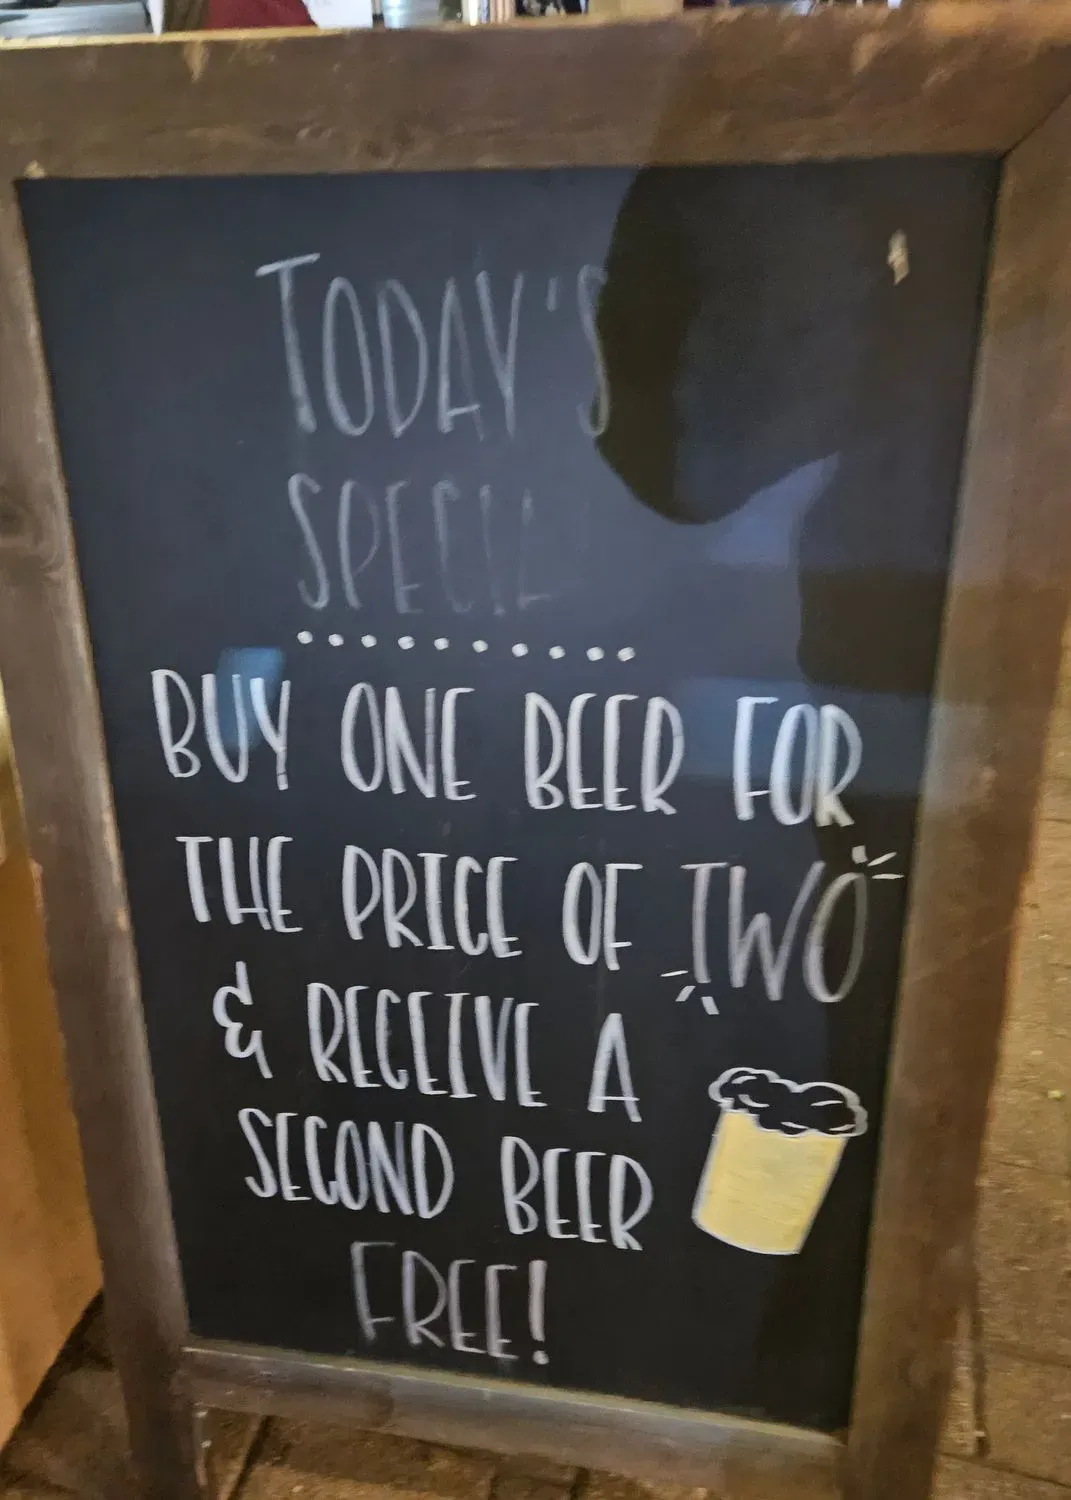 TODAY'S
SPECIA
BUY ONE BEER FOR
THE PRICE OF TWO
& RECEIVE A
SECOND BEER
FREE!